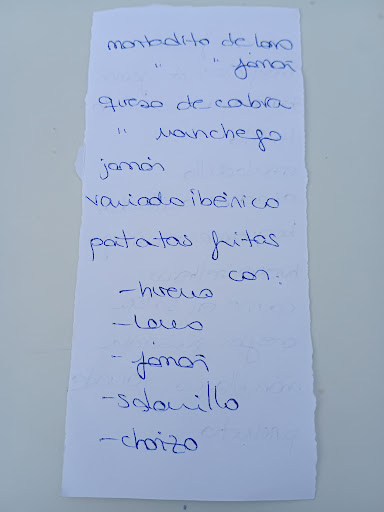 montadito de lomo
" " jamón
queso de cabra
" manchego
jamón
variado ibérico
patatas fritas
con:
- huevo
- lomo
- jamón
- solomillo
- chorizo